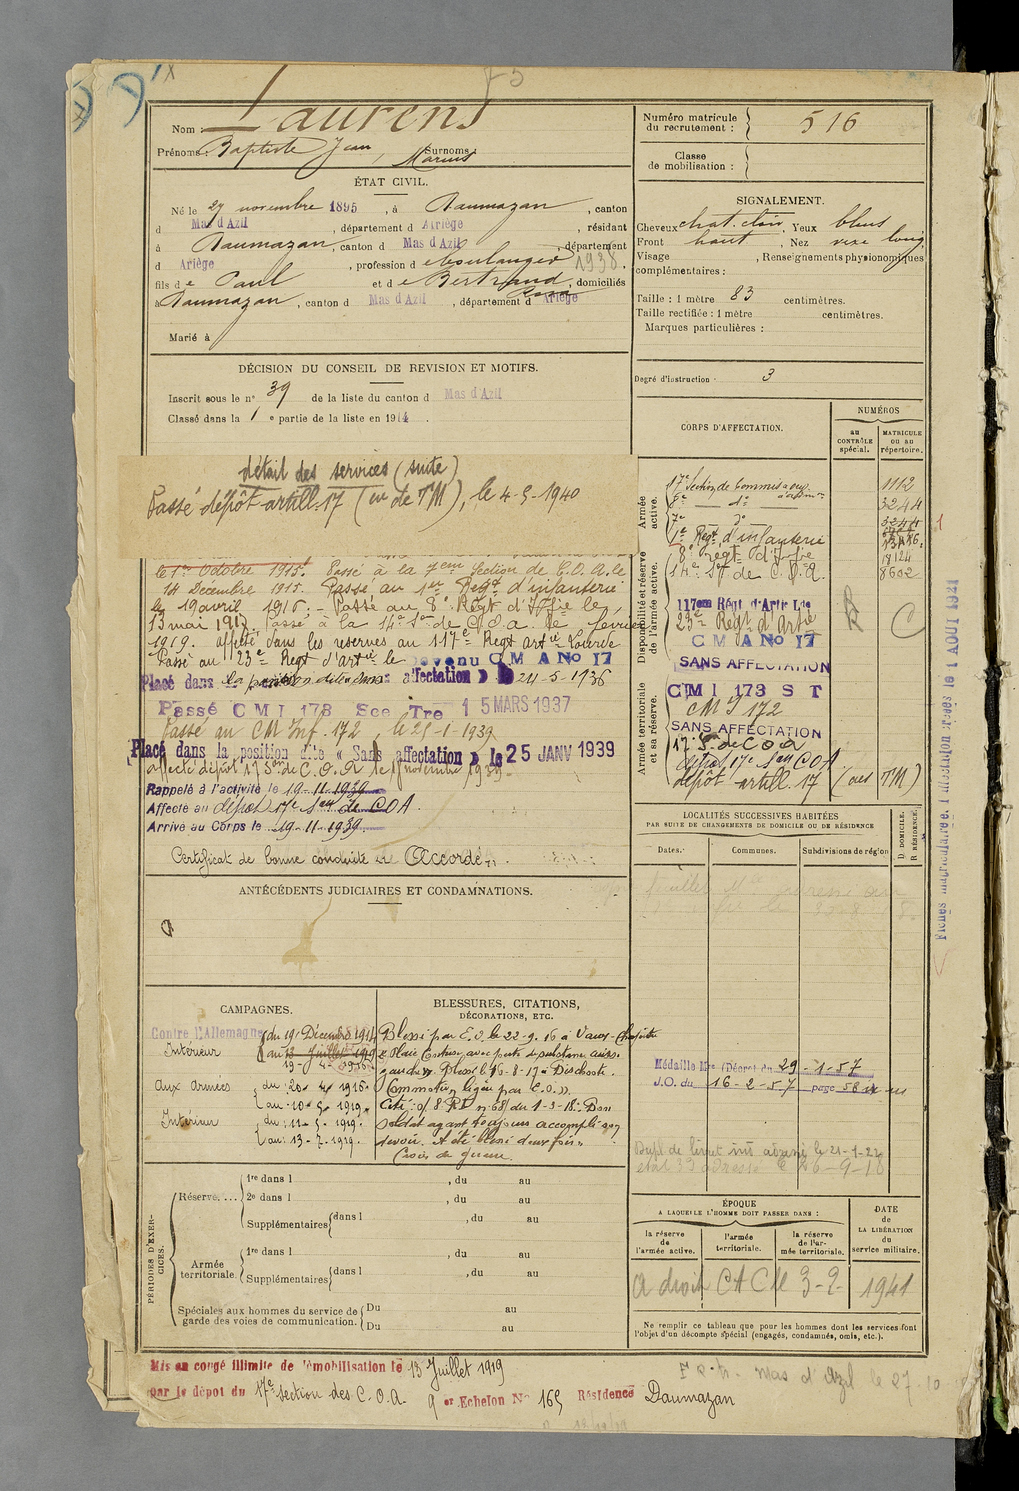 Nom : Laurens
Prénoms : Baptiste Jean, Marius Surnoms :
ÉTAT CIVIL.
Né le 27 novembre 1895, à Daumazan, canton
d Mas d'Azil, département d Ariège, résidant
à Daumazan, canton d Mas d'Azil, département
d Ariège, profession d e boulanger 1938.
fils d e Paul et d e Bertrand Rosa, domiciliés
à Daumazan, canton d Mas d'Azil, département d Ariège
Marié à
DÉCISION DU CONSEIL DE REVISION ET MOTIFS.
Inscrit sous le n° 39 de la liste du canton d Mas d'Azil
Classé dans la 1 e partie de la liste en 1914.
détail des services (suite)
Passé dépôt artill. 17 (ou de TM), le 4-5-1940
le 1er Octobre 1915. Passé à la 7eme Section de C.O.A. le
14 Decembre 1915. Passé au 1er Regt d'infanterie
le 19 avril 1916. - Passé au 8e Régt d'Inffie le
13 mai 1917 Passé à la 14e Son de C.O.A. le février
1919. affecté dans les reserves au 117e Regt artie Lourde
Passé au 23e Regt d'artie le devenu C M A No 17
Placé dans la position dite sans affectation » le 24-5-1936
Passé C M I 173 See Tre 15 MARS 1937
Passé au CM Inf. 172, le 25-1-1939
Placé dans la position dite « Sans affectation » le 25 JANV 1939
affecté dépôt 17 Son de C.O.A le 1 novembre 1939.
Rappelé à l'activité le 19-11-1939
Affecté au dépôt 17e Son de COA.
Arrivé au Corps le 19-11-1939
Certificat de bonne conduite « Accordé ».
ANTÉCÉDENTS JUDICIAIRES ET CONDAMNATIONS.
CAMPAGNES.
Contre l'Allemagne du 19 Décembre 1914
Intérieur au 13 Juillet 1919
19-4-1916
Aux Armées du 20-4-1916.
au 10-5-1919.
Intérieur du 11-5-1919.
au 13-7-1919.
BLESSURES, CITATIONS,
DÉCORATIONS, ETC.
Blessé par E.O. le 22-9-16 à Vaux-Chapitre
« Plaie Contuse avec perte de substance cuisse
gauche ». Blessé le 16-8-17 à Dixchoote.
Commotion légère par E.O. ».
Cité : o/ 8 R.I. n° 68/ du 1-3-18 : Bon
soldat ayant toujours accompli son
devoir. A été blessé deux fois.
Croix de guerre.
PÉRIODES D'EXERCICES.
Réserve. ...
1re dans l , du au
2e dans l , du au
Supplémentaires dans l , du au
Armée territoriale.
1re dans l , du au
Supplémentaires dans l , du au
Spéciales aux hommes du service de garde des voies de communication.
Du au
Du au
Mis en congé illimité de démobilisation le 13 Juillet 1919
par le dépôt du 17e section des C.O.A. 9 er Echelon No 165 Résidence Daumazan
Numéro matricule du recrutement : 516
Classe de mobilisation :
SIGNALEMENT.
Cheveux chat. clair, Yeux bleus
Front haut, Nez long
Visage , Renseignements physionomiques
complémentaires :
Taille : 1 mètre 83 centimètres.
Taille rectifiée : 1 mètre centimètres.
Marques particulières :
Degré d'instruction : 3
CORPS D'AFFECTATION.
NUMÉROS
au CONTRÔLE spécial.
MATRICULE ou au répertoire.
Armée active.
17e Section de Commis & ouv. d'admon 1112
8e do 3244
7e do 3244
1e Regt d'infanterie
Disponibilité et réserve de l'armée active.
8e regt d'Inffie 18124
14e Son de C.O.A. 8602
117eme Régt d'Artie Lde
23e Regt d'Artie
C M A No 17
SANS AFFECTATION
Armée territoriale et sa réserve.
CMI 173 S T
CMI 172
SANS AFFECTATION
17 S. de COA
dépôt 17e Son COA
dépôt artill. 17 (ou TM)
R C
LOCALITÉS SUCCESSIVES HABITÉES
PAR SUITE DE CHANGEMENTS DE DOMICILE OU DE RÉSIDENCE
Dates. Communes. Subdivisions de région D. DOMICILE. R. RÉSIDENCE.
Médaille Mre (Décret du 29-1-57
J.O. du 16-2-57 page 58
Dupl. de livret ind adressé le 21-1-22
ÉPOQUE
A LAQUELLE L'HOMME DOIT PASSER DANS :
la réserve de l'armée active.
l'armée territoriale.
la réserve de l'armée territoriale.
DATE de LA LIBÉRATION du service militaire.
a droit CACM 3-9- 1941
Ne remplir ce tableau que pour les hommes dont les services font
l'objet d'un décompte spécial (engagés, condamnés, omis, etc.).
Mas d'Azil le 27.10